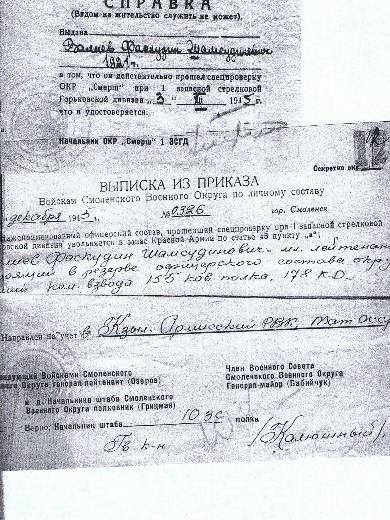 СПРАВКА
(Видом на жительство служить не может).
Выдана
Валиев Фаскудин Шамсудинович
1921 г.
в том, что он действительно прошел спецпроверку
ОКР „Смерш" при 1 запасной стрелковой
Горьковской дивизии „3" XII 1945 г.
что и удостоверяется.
Начальник ОКР „Смерш" 1 ЗСГД
Секретно
ВЫПИСКА ИЗ ПРИКАЗА
Войскам Смоленского Военного Округа по личному составу
декабря 1945 г. № 0326 гор. Смоленск
офицерский состав, прошедший спецпроверку при 1 запасной стрелковой
дивизии увольняется в запас Красной Армии по статье 43 пункту „а";
Фаскудин Шамсудинович - мл. лейтенант
в резерве офицерского состава
ком. взвода 155 кав. полка, 178 К.Д.
Направлен на учет в РВК, Тат
Войсками Смоленского
Округа генерал лейтенант (Озеров)
Член Военного Совета
Смоленского Военного Округа
Генерал-майор (Бабийчук)
и. д. Начальника штаба Смоленского
Военного Округа полковник (Грицман)
Верно: Начальник штаба 10 зс. полка
Гв. к-н /Калюшный/